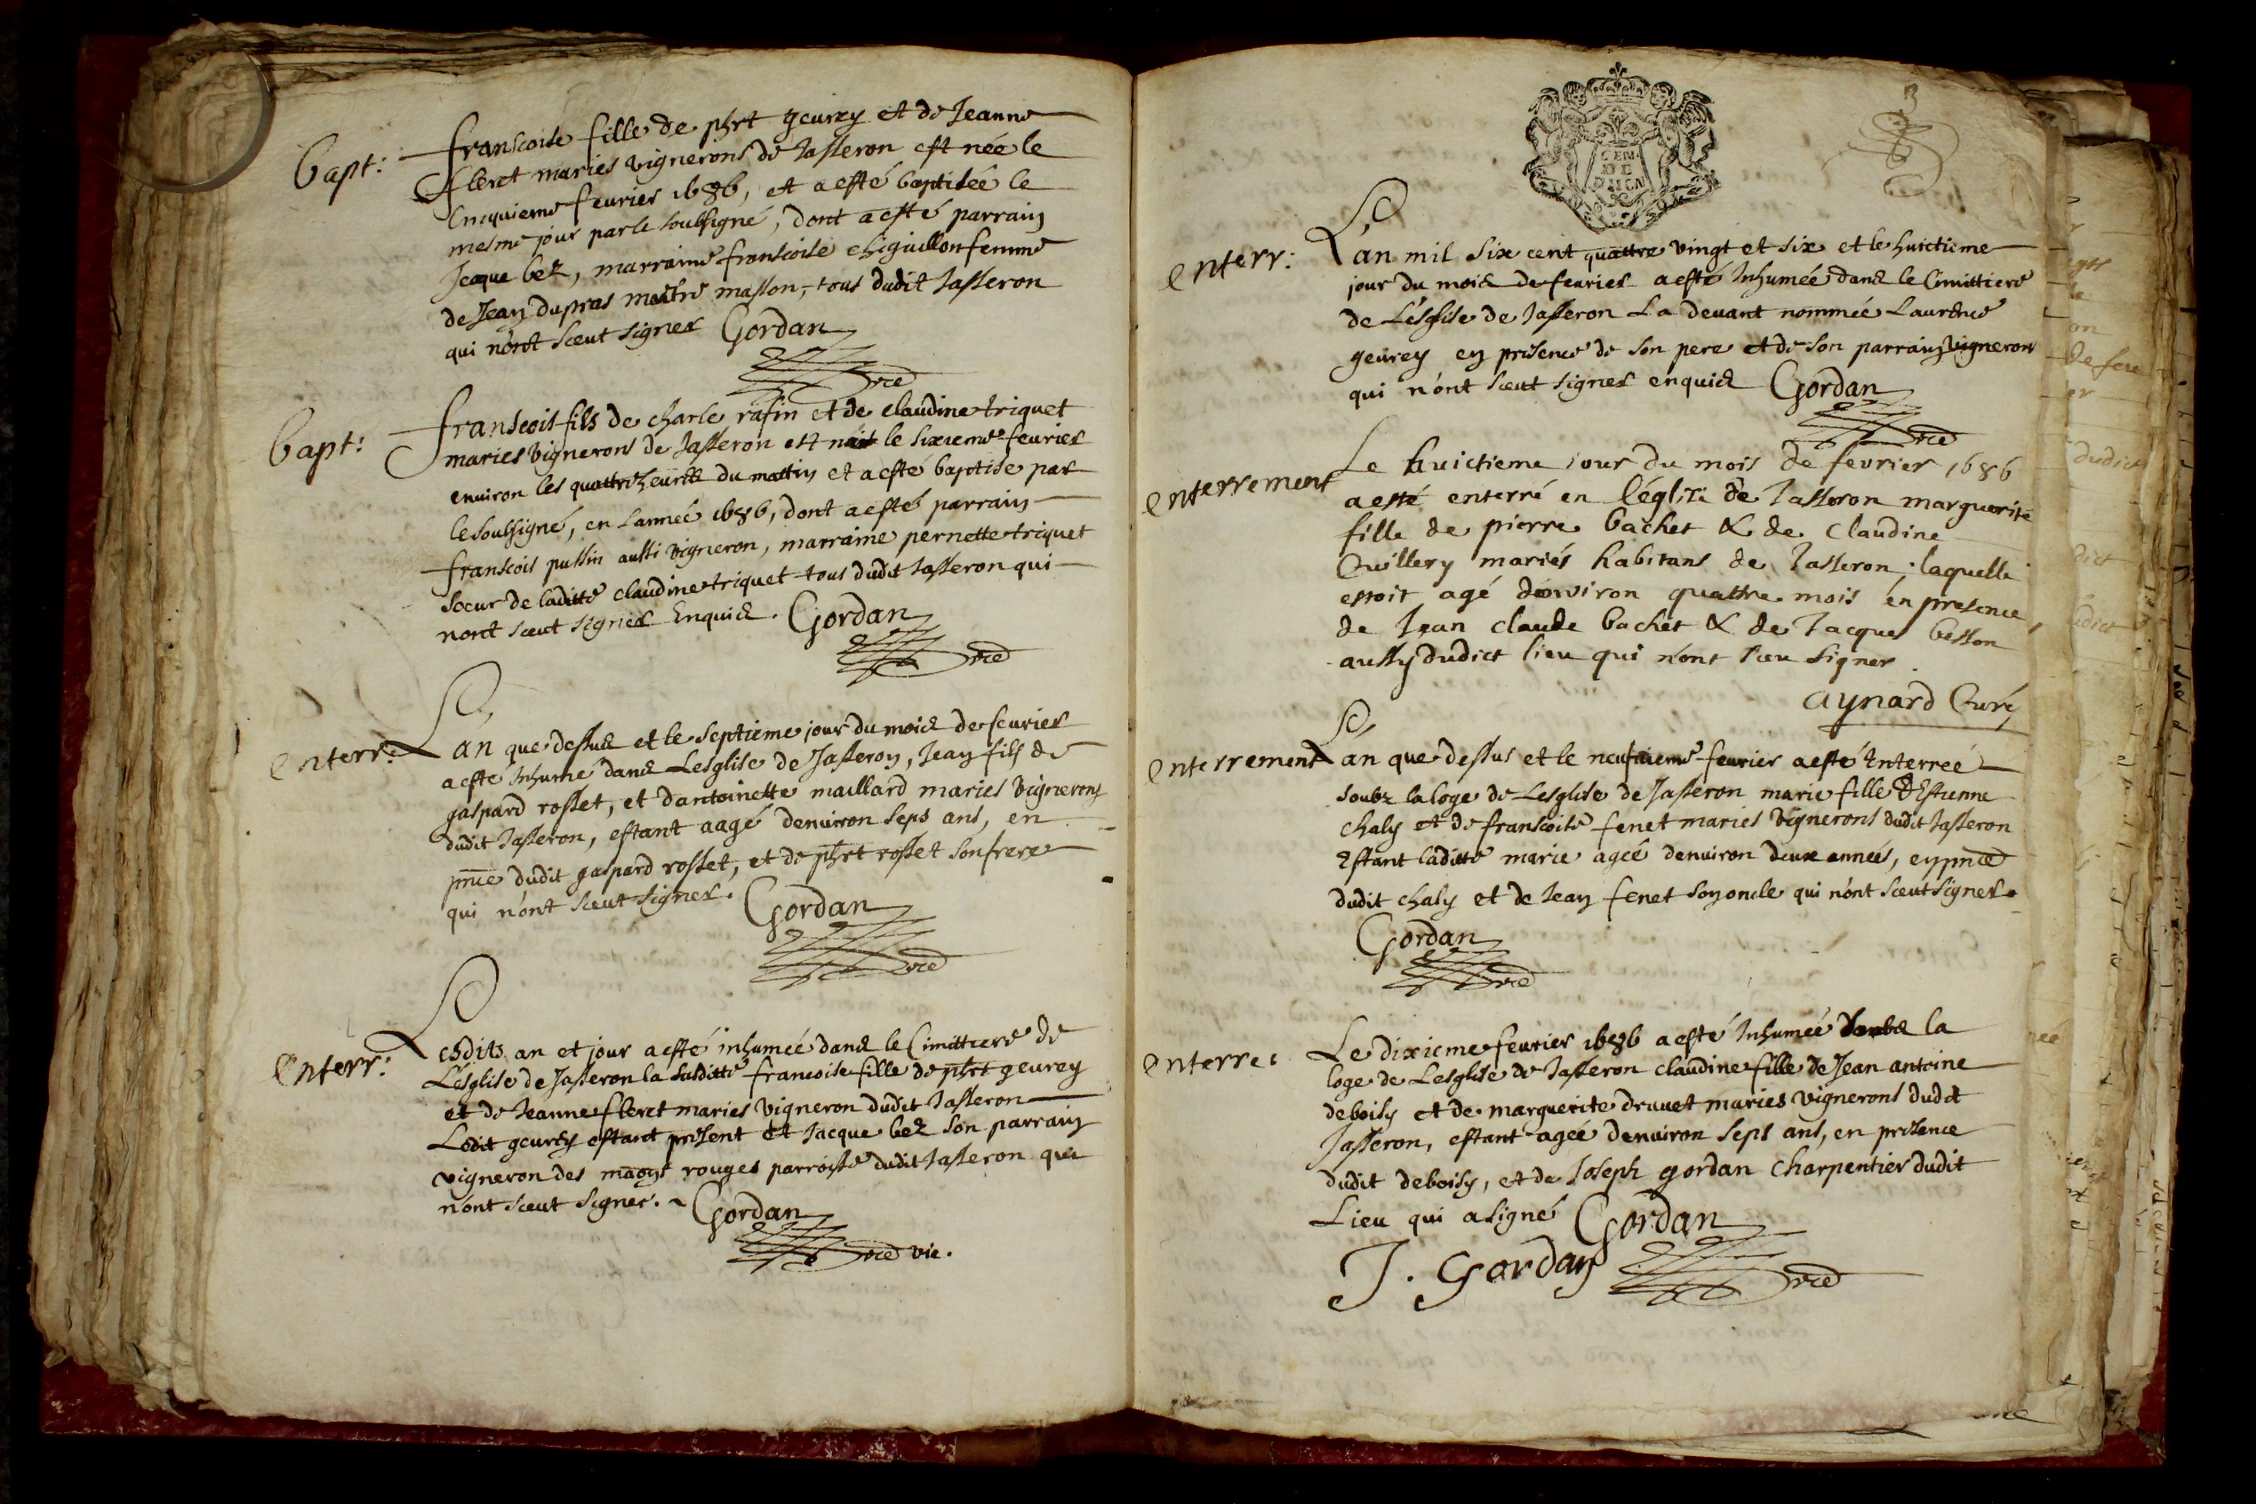 bapt:
françoise fille de phrt geurey et de Jeanne
fleret maries vignerons de Jasseron est née le
Cinquieme feurier 1686, et a esté baptisée le
mesme jour par le soubsigné, dont a esté parrain
Jaque bez, marraine françoise chiguillon femme
de Jean dupras maitre masson, tous dudit Jasseron
qui n'ont sceut signer Gordan
vice
bapt:
françois fils de charle rafin et de claudine triquet
maries vignerons de Jasseron est nait le sixieme feurier
enuiron les quattre heures du mattin et a esté baptise par
le soubsigné, en l'année 1686, dont a esté parrain
françois pussin aussi vigneron, marraine pernette triquet
soeur de laditte claudine triquet tous dudit Jasseron qui
n'ont sceut signer Enquis. Gordan
vice
enterr:
L'an que dessus et le septieme jour du mois de feurier
a esté Inhumé dans Lesglise de Jasseron, Jean fils de
gaspard rosset, et d'antoinette maillard maries vignerons
dudit Jasseron, estant aagé denuiron seps ans, en
pnce dudit gaspard rosset, et de phrt rosset son frere
qui n'ont sceut signer. Gordan
vice
enterr:
Lesdits an et jour a esté inhumée dans le Cimittiere de
L'esglise de Jasseron la susditte francoise fille de phrt geurey
et de Jeanne fleret maries vigneron dudit Jasseron
Ledit geurey estant present et Jacque bez son parrain
vigneron des rouges parroisse dudit Jasseron qui
n'ont sceut signer. Gordan
vice vic.
3
GEN.
DE
enterr:
L'an mil six cent quattre vingt et six et le huictieme
jour du mois de feurier a esté Inhumée dans le Cimittiere
de L'esglise de Jasseron La deuant nommée Laurence
geurey en presence de son pere et de son parrain vigneron
qui n'ont sceut signer enquis Gordan
vice
enterrement
Le huictieme jour du mois de fevrier 1686
a esté enterré en l'église de Jasseron marguerite
fille de pierre bachet & de Claudine
Cuillery mariés habitans de Jasseron, laquelle
estoit agé d'environ quattre mois en presence
de Jean claude bachet & de Jacque besson
aussy dudict lieu qui n'ont sceu signer
aynard Curé
enterrement
L'an que dessus et le neufuieme feurier a esté Enterrée
soubz la loge de Lesglise de Jasseron marie fille d'Estienne
chaly et de françoise fenet maries vignerons dudit Jasseron
Estant laditte marie agée denuiron deux années, en pnce
dudit chaly et de Jean fenet son oncle qui n'ont sceut signer
Gordan
vice
enterre:
Le dixieme feurier 1686 a esté Inhumée soubs la
loge de Lesglise de Jasseron claudine fille de Jean antoine
deboisy et de marguerite druuet maries vignerons dudit
Jasseron, estant agée denuiron seps ans, en presence
dudit deboisy, et de Joseph gordan Charpentier dudit
Lieu qui a signé Gordan
J. Gordan
vice